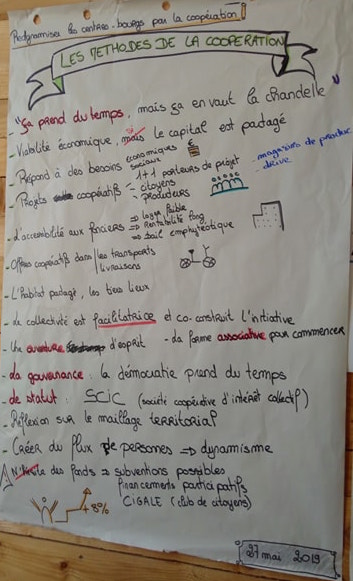 Redynamiser les centres-bourgs par la coopération
LES METHODES DE LA COOPERATION
"ça prend du temps, mais ça en vaut la chandelle"
- Viabilité économique, mais le capital est partagé
- Répond à des besoins économiques
sociaux
magasins de produc
drive
- Projets coopératifs - 1+1 porteurs de projet
- citoyens
- producteurs
- d'accessibilité aux fonciers => loyer faible
=> Rentabilité long
=> bail emphytéotique
- Offres coopératives dans les transports
livraisons
- L'habitat partagé, les tiers lieux
- La collectivité est facilitatrice et co-construit l'initiative
- Une ouverture d'esprit - La forme associative pour commencer
- La gouvernance : la démocratie prend du temps
- Le statut : SCIC (société coopérative d'intérêt collectif)
- Réflexion sur le maillage territorial
- Créer du flux de personnes => dynamisme
des fonds => subventions possibles
financements participatifs
CIGALE (club de citoyens)
+8%
27 mai 2019